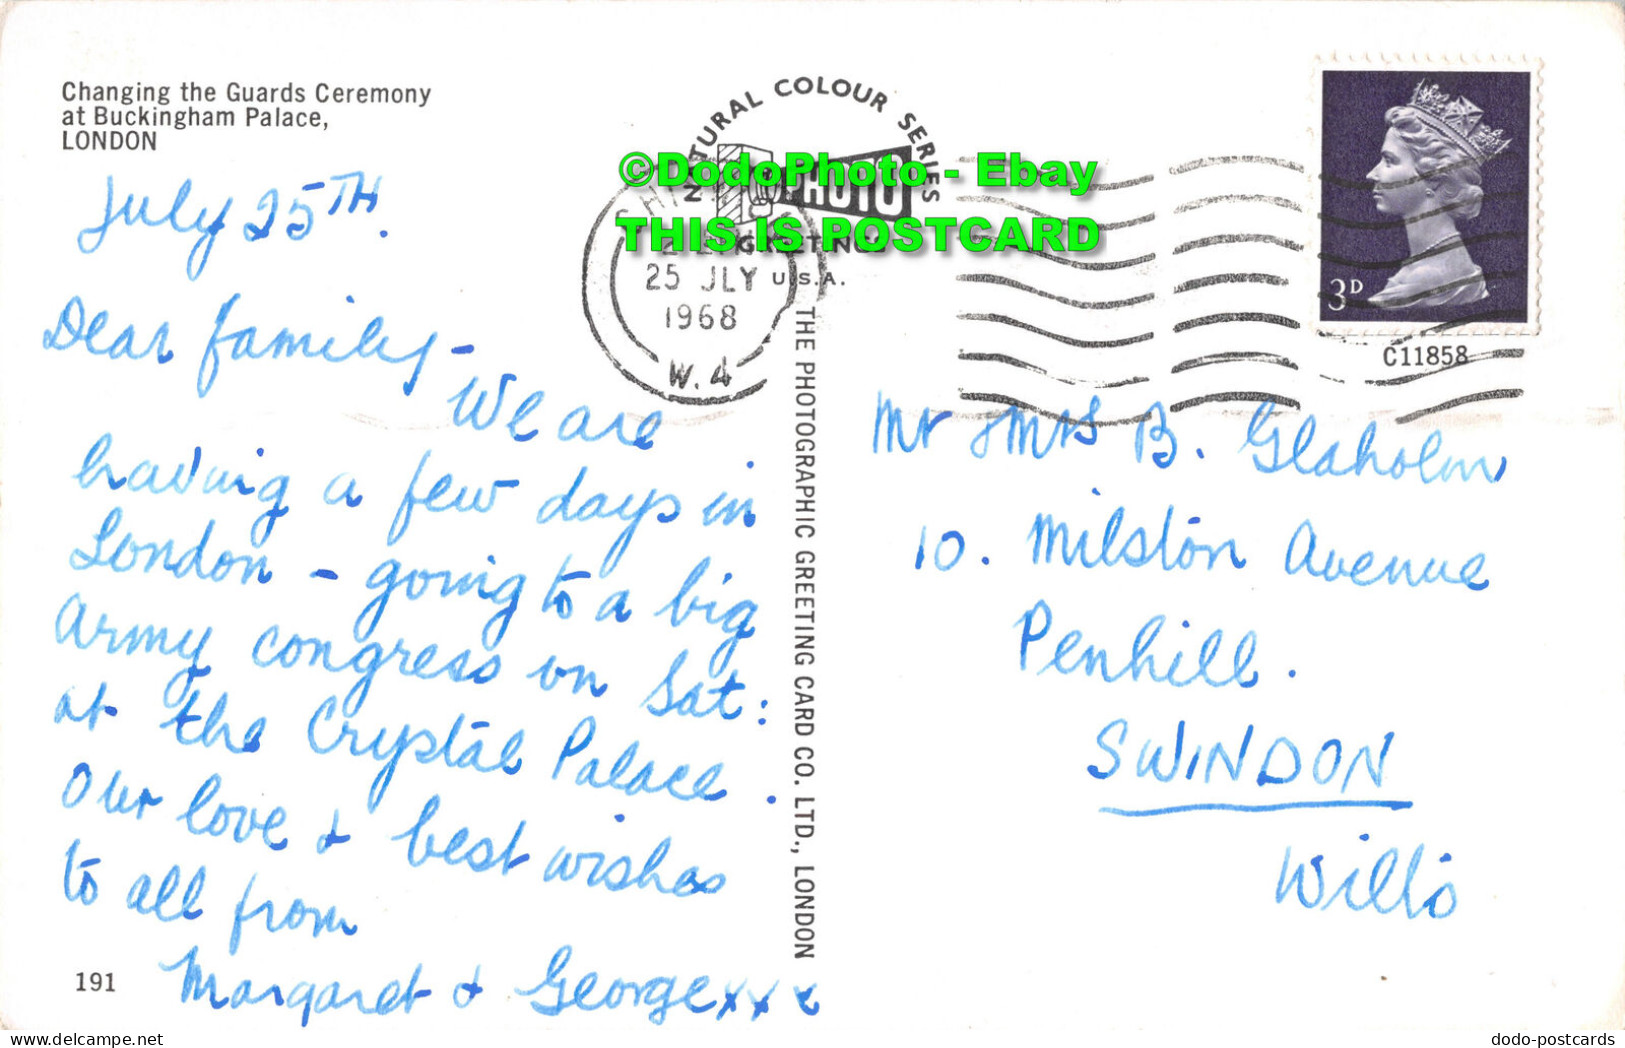 Changing the Guards Ceremony
at Buckingham Palace,
LONDON
July 25TH.
Dear family -
We are
having a few days in
London - going to a big
Army congress on Sat:
at the Crystal Palace.
Our love & best wishes
to all from
Margaret & George xxx
191
NATURAL COLOUR SERIES
PHOTO
GREETINGS
U.S.A.
©DodoPhoto - Ebay
THIS IS POSTCARD
25 JLY
1968
W.4
THE PHOTOGRAPHIC GREETING CARD CO. LTD., LONDON
3D
C11858
Mr & Mrs B. Glaholm
10. Milston Avenue
Penhill.
SWINDON
Wilts
delcampe.net
dodo-postcards